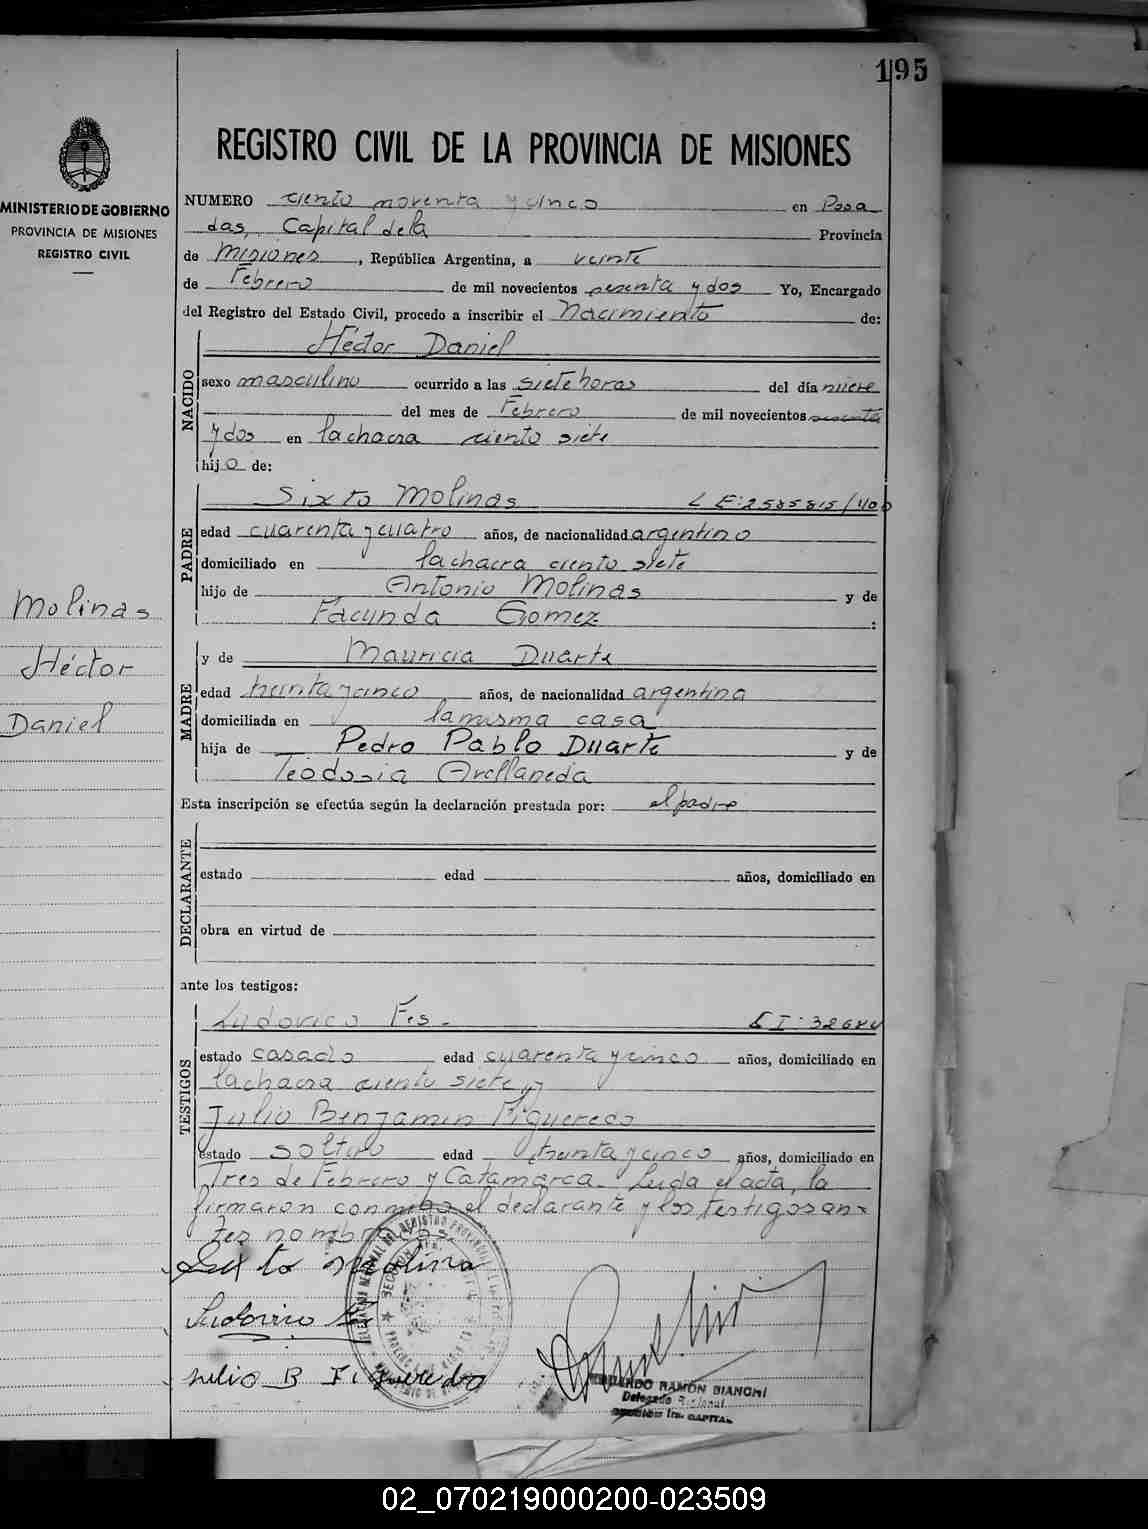 195
REGISTRO CIVIL DE LA PROVINCIA DE MISIONES
MINISTERIO DE GOBIERNO
PROVINCIA DE MISIONES
REGISTRO CIVIL
NUMERO ciento noventa y cinco en Posa
das, Capital de la Provincia
de Misiones, República Argentina, a veinte
de Febrero de mil novecientos sesenta y dos Yo, Encargado
del Registro del Estado Civil, procedo a inscribir el Nacimiento de:
NACIDO
Héctor Daniel
sexo masculino ocurrido a las siete horas del día nueve
del mes de Febrero de mil novecientos sesenta
y dos en la chacra ciento siete
hijo de:
PADRE
Sixto Molinas L E: 2585815/400
edad cuarenta y cuatro años, de nacionalidad argentino
domiciliado en la chacra ciento siete
hijo de Antonio Molinas y de
Facunda Gomez :
Molinas
Héctor
Daniel
MADRE
y de Mauricia Duarte
edad treinta y cinco años, de nacionalidad argentina
domiciliada en la misma casa
hija de Pedro Pablo Duarte y de
Teodosia Arellaneda
Esta inscripción se efectúa según la declaración prestada por: el padre
DECLARANTE
estado edad años, domiciliado en
obra en virtud de
ante los testigos:
TESTIGOS
Ludovico Fes.
estado casado edad cuarenta y cinco años, domiciliado en
la chacra ciento siete y
Julio Benjamin Figueredo
estado soltero edad treinta y cinco años, domiciliado en
Tres de Febrero y Catamarca. Leida el acta, la
firmaron conmigo el declarante y los testigos an-
tes nombrados.
Sixto Molina
Ludovico
Julio B Figueredo
EDUARDO RAMÓN BIANCHI
Delegado Regional
SECCION 1ra. CAPITAL
02_070219000200-023509